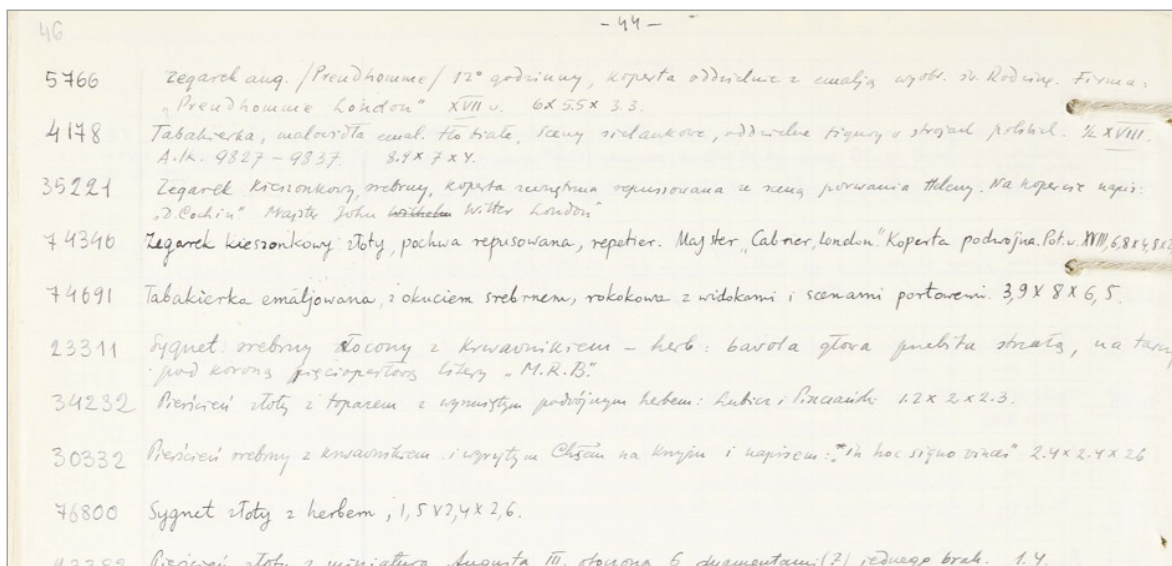 46
- 44 -
5766 Zegarek ang. /Preudhomme/ 12° godzinny, koperta oddzielnie z emalją wyobr. św. Rodzinę. Firma:
"Preudhomme London" XVII w. 6 x 5.5 x 3.3.
4178 Tabakierka, malowidła emal. tło białe, sceny sielankowe, oddzielne figury w strojach polskich. ½ XVIII.
A.K. 9827 - 9837. 8.4 x 7 x 4.
35221 Zegarek kieszonkowy, srebrny, koperta zewnętrzna repussowana ze sceną porwania Heleny. Na kopercie napis:
"D. Cochin". Majster John Wilhelm Witter London"
74346 Zegarek kieszonkowy złoty, pochwa repusowana, repetier. Majster "Cabrier, London" Koperta podwójna. Poł. w. XVIII, 6,8 x 4,8 x 2,
74691 Tabakierka emaljowana, z okuciem srebrnem, rokokowa z widokami i scenami portowemi. 3,9 x 8 x 6,5.
23311 Sygnet srebrny złocony z krwawnikiem - herb: bawola głowa przebita strzałą, na tarczy
pod koroną pięciopałkową litery "M.R.B."
34232 Pierścień złoty z topazem z wyrzniętym podwójnym herbem: Lubicz i 1.2 x 2 x 2.3.
30332 Pierścień srebrny z krwawnikiem i wyrytym Chrystusem na krzyżu i napisem: "in hoc signo vinces" 2.4 x 2.4 x 26
76800 Sygnet złoty z herbem, 1,5 x 2,4 x 2,6.
Pierścień złoty z miniaturą Augusta III. otoczoną 6 diamentami (?) jednego brak. 1.4.